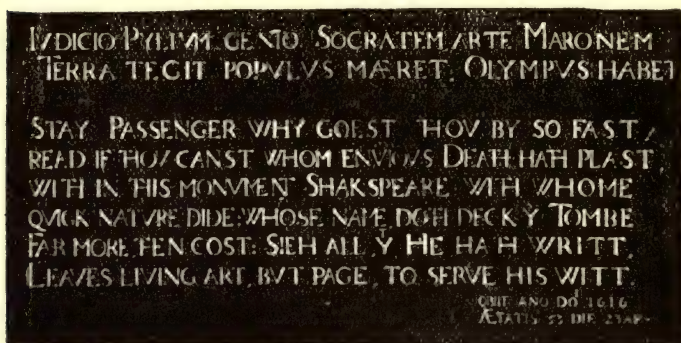 IVDICIO PYLIVM, GENIO SOCRATEM, ARTE MARONEM
TERRA TEGIT, POPVLVS MÆRET, OLYMPVS HABET
STAY PASSENGER WHY GOEST THOV BY SO FAST,
READ IF THOV CANST WHOM ENVIOVS DEATH HATH PLAST
WITH IN THIS MONVMENT SHAKSPEARE WITH WHOME
QVICK NATVRE DIDE WHOSE NAME DOTH DECK Yͤ TOMBE
FAR MORE TEN COST: SIEH ALL Yͭ HE HATH WRITT,
LEAVES LIVING ART, BVT PAGE, TO SERVE HIS WITT.
OBIIT ANO DOI 1616
ÆTATIS 53 DIE 23 AP